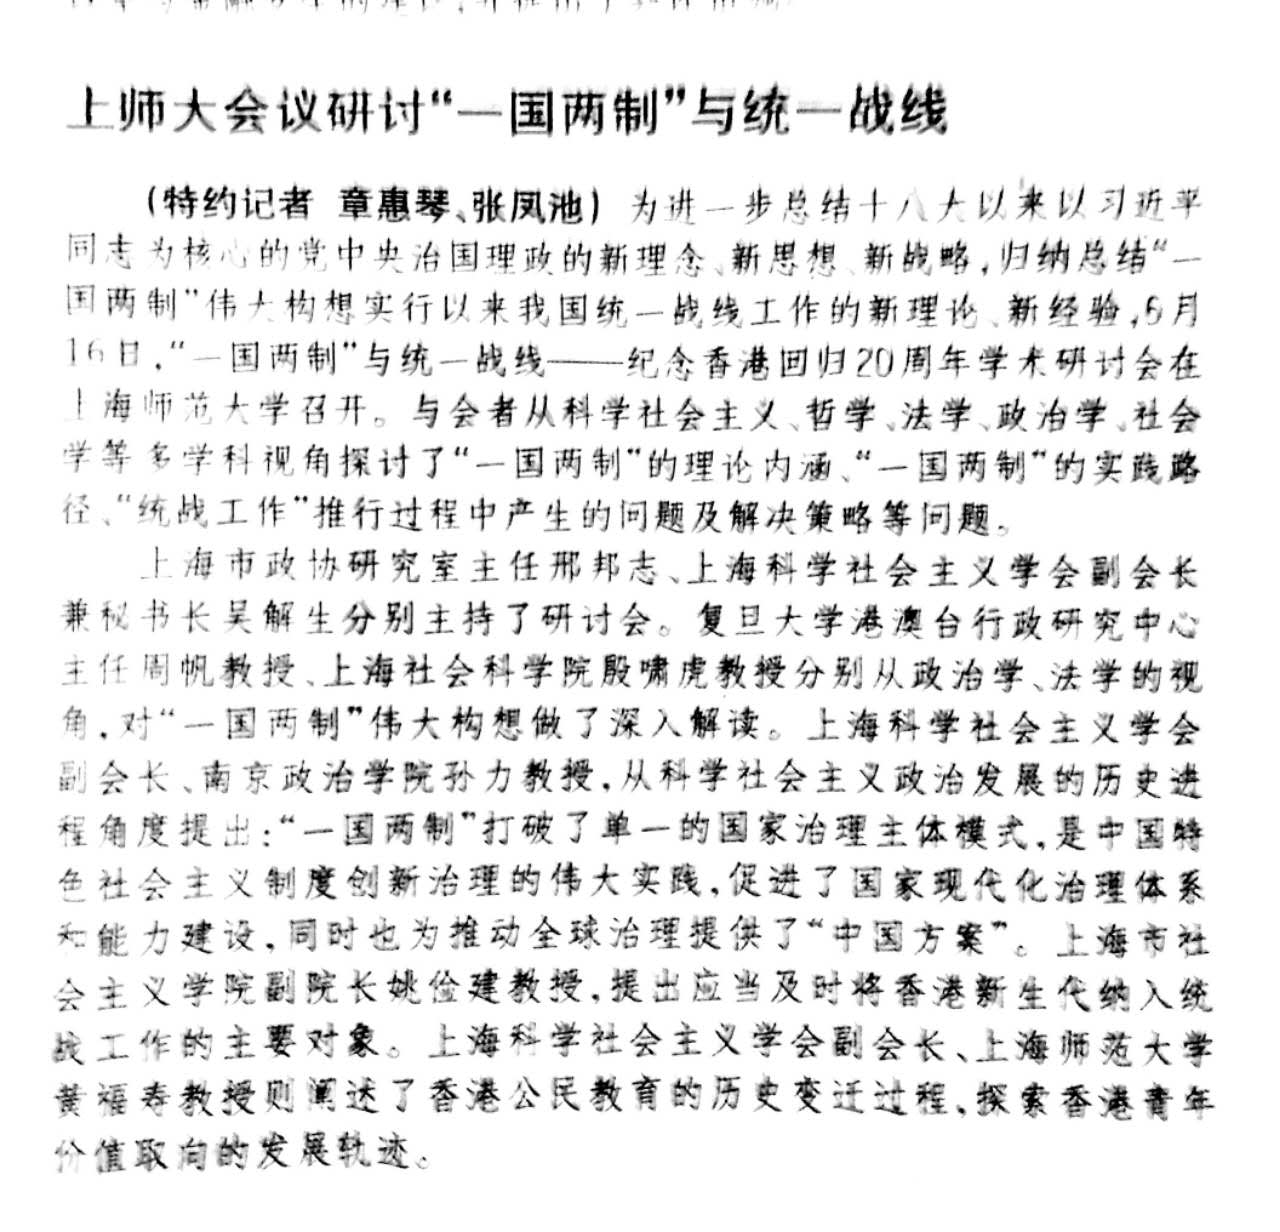 上师大会议研讨“一国两制”与统一战线
(特约记者 章惠琴、张凤池) 为进一步总结十八大以来以习近平
同志为核心的党中央治国理政的新理念、新思想、新战略,归纳总结“一
国两制”伟大构想实行以来我国统一战线工作的新理论、新经验,6月
16日,“一国两制”与统一战线——纪念香港回归20周年学术研讨会在
上海师范大学召开。与会者从科学社会主义、哲学、法学、政治学、社会
学等多学科视角探讨了“一国两制”的理论内涵、“一国两制”的实践路
径、“统战工作”推行过程中产生的问题及解决策略等问题。
上海市政协研究室主任邢邦志、上海科学社会主义学会副会长
兼秘书长吴解生分别主持了研讨会。复旦大学港澳台行政研究中心
主任周帆教授、上海社会科学院殷啸虎教授分别从政治学、法学的视
角,对“一国两制”伟大构想做了深入解读。上海科学社会主义学会
副会长、南京政治学院孙力教授,从科学社会主义政治发展的历史进
程角度提出:“一国两制”打破了单一的国家治理主体模式,是中国特
色社会主义制度创新治理的伟大实践,促进了国家现代化治理体系
和能力建设,同时也为推动全球治理提供了“中国方案”。上海市社
会主义学院副院长姚俭建教授,提出应当及时将香港新生代纳入统
战工作的主要对象。上海科学社会主义学会副会长、上海师范大学
黄福寿教授则阐述了香港公民教育的历史变迁过程,探索香港青年
价值取向的发展轨迹。